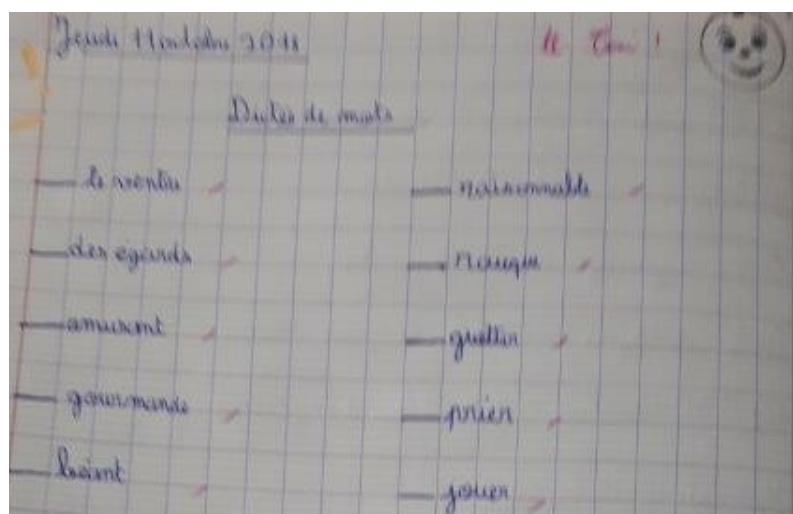 Jeudi 11 octobre 2018
Dictée de mots
le ventre
des égards
amusant
gourmande
raisonnable
guetter
prier
jouer